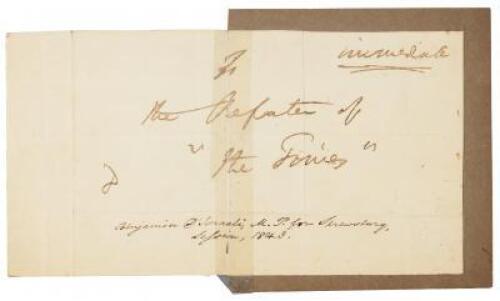 immediate
To
the Reporter of
"The Times"
D
Benjamin D'Israeli, M.P. for Shrewsbury,
Session, 1843.